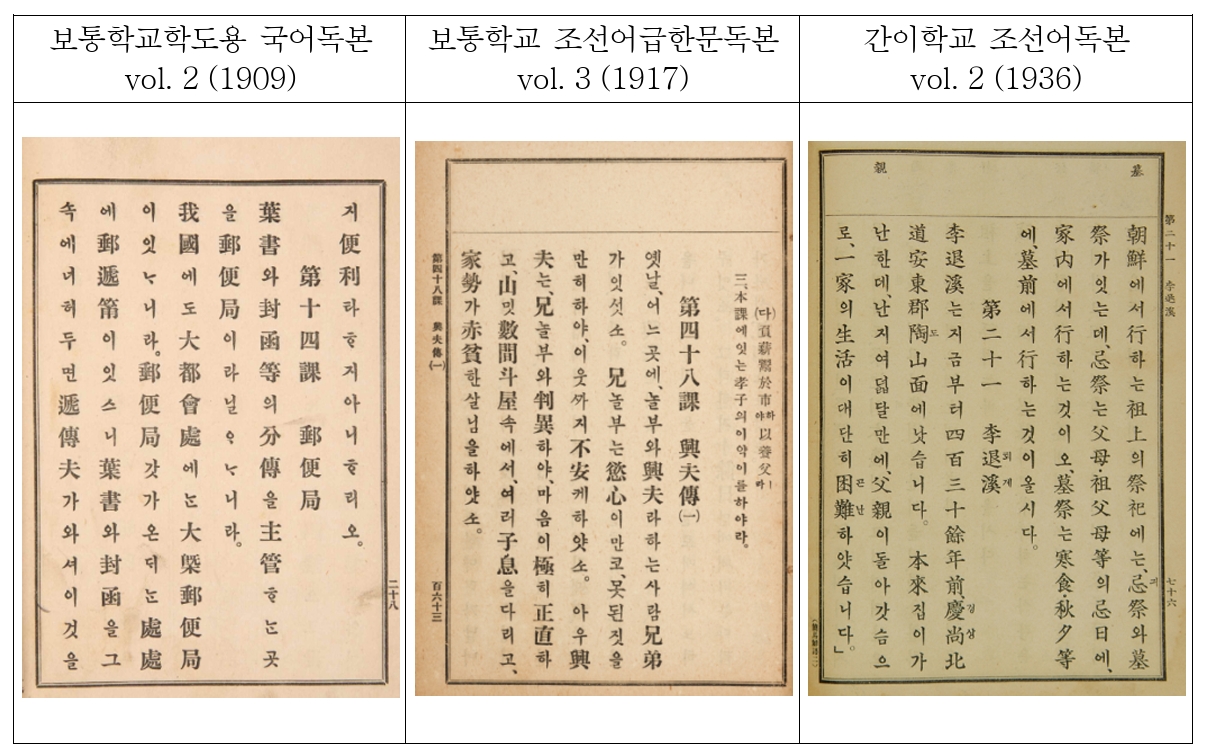 보통학교학도용 국어독본
vol. 2 (1909)
보통학교 조선어급한문독본
vol. 3 (1917)
간이학교 조선어독본
vol. 2 (1936)
지便利라ᄒᆞ지아니ᄒᆞ리오。
第十四課 郵便局
葉書와封函等의分傳을主管ᄒᆞᄂᆞᆫ곳
을郵便局이라닐ᄋᆞᄂᆞ니라。
我國에도大都會處에ᄂᆞᆫ大槩郵便局
이잇ᄂᆞ니라。郵便局갓가온ᄃᆡᄂᆞᆫ處處
에郵遞筩이잇스니葉書와封函을그
속에너허두면遞傳夫가와셔이것을
二十八
(다)負薪鬻於市하야以養父ㅣ라
三、本課에잇는孝子의이약이를하야라。
第四十八課 興夫傳(一)
옛날、어느곳에、놀부와興夫라하는사람兄弟
가잇섯소。 兄놀부는慾心이만코、못된짓을
만히하야、이웃ᄭᅡ지不安케하얏소。 아우興
夫는、兄놀부와判異하야、마음이極히正直하
고、山밋數間斗屋속에서、여러子息을다리고、
家勢가赤貧한살님을하얏소。
第四十八課 興夫傳(一) 百六十三
第二十一 李退溪 七十六
墓
親
朝鮮에서行하는祖上의祭祀에는、忌祭와墓
祭가잇는데、忌祭는父母·祖父母等의忌日에、
家内에서行하는것이오、墓祭는寒食·秋夕等
에、墓前에서行하는것이올시다。
第二十一 李退溪
李退溪는지금부터四百三十餘年前、慶尙北
道安東郡陶山面에낫습니다。 本來집이가
난한데、난지여덟달만에、父親이돌아갓슴으
로、一家의生活이대단히困難하얏습니다。」